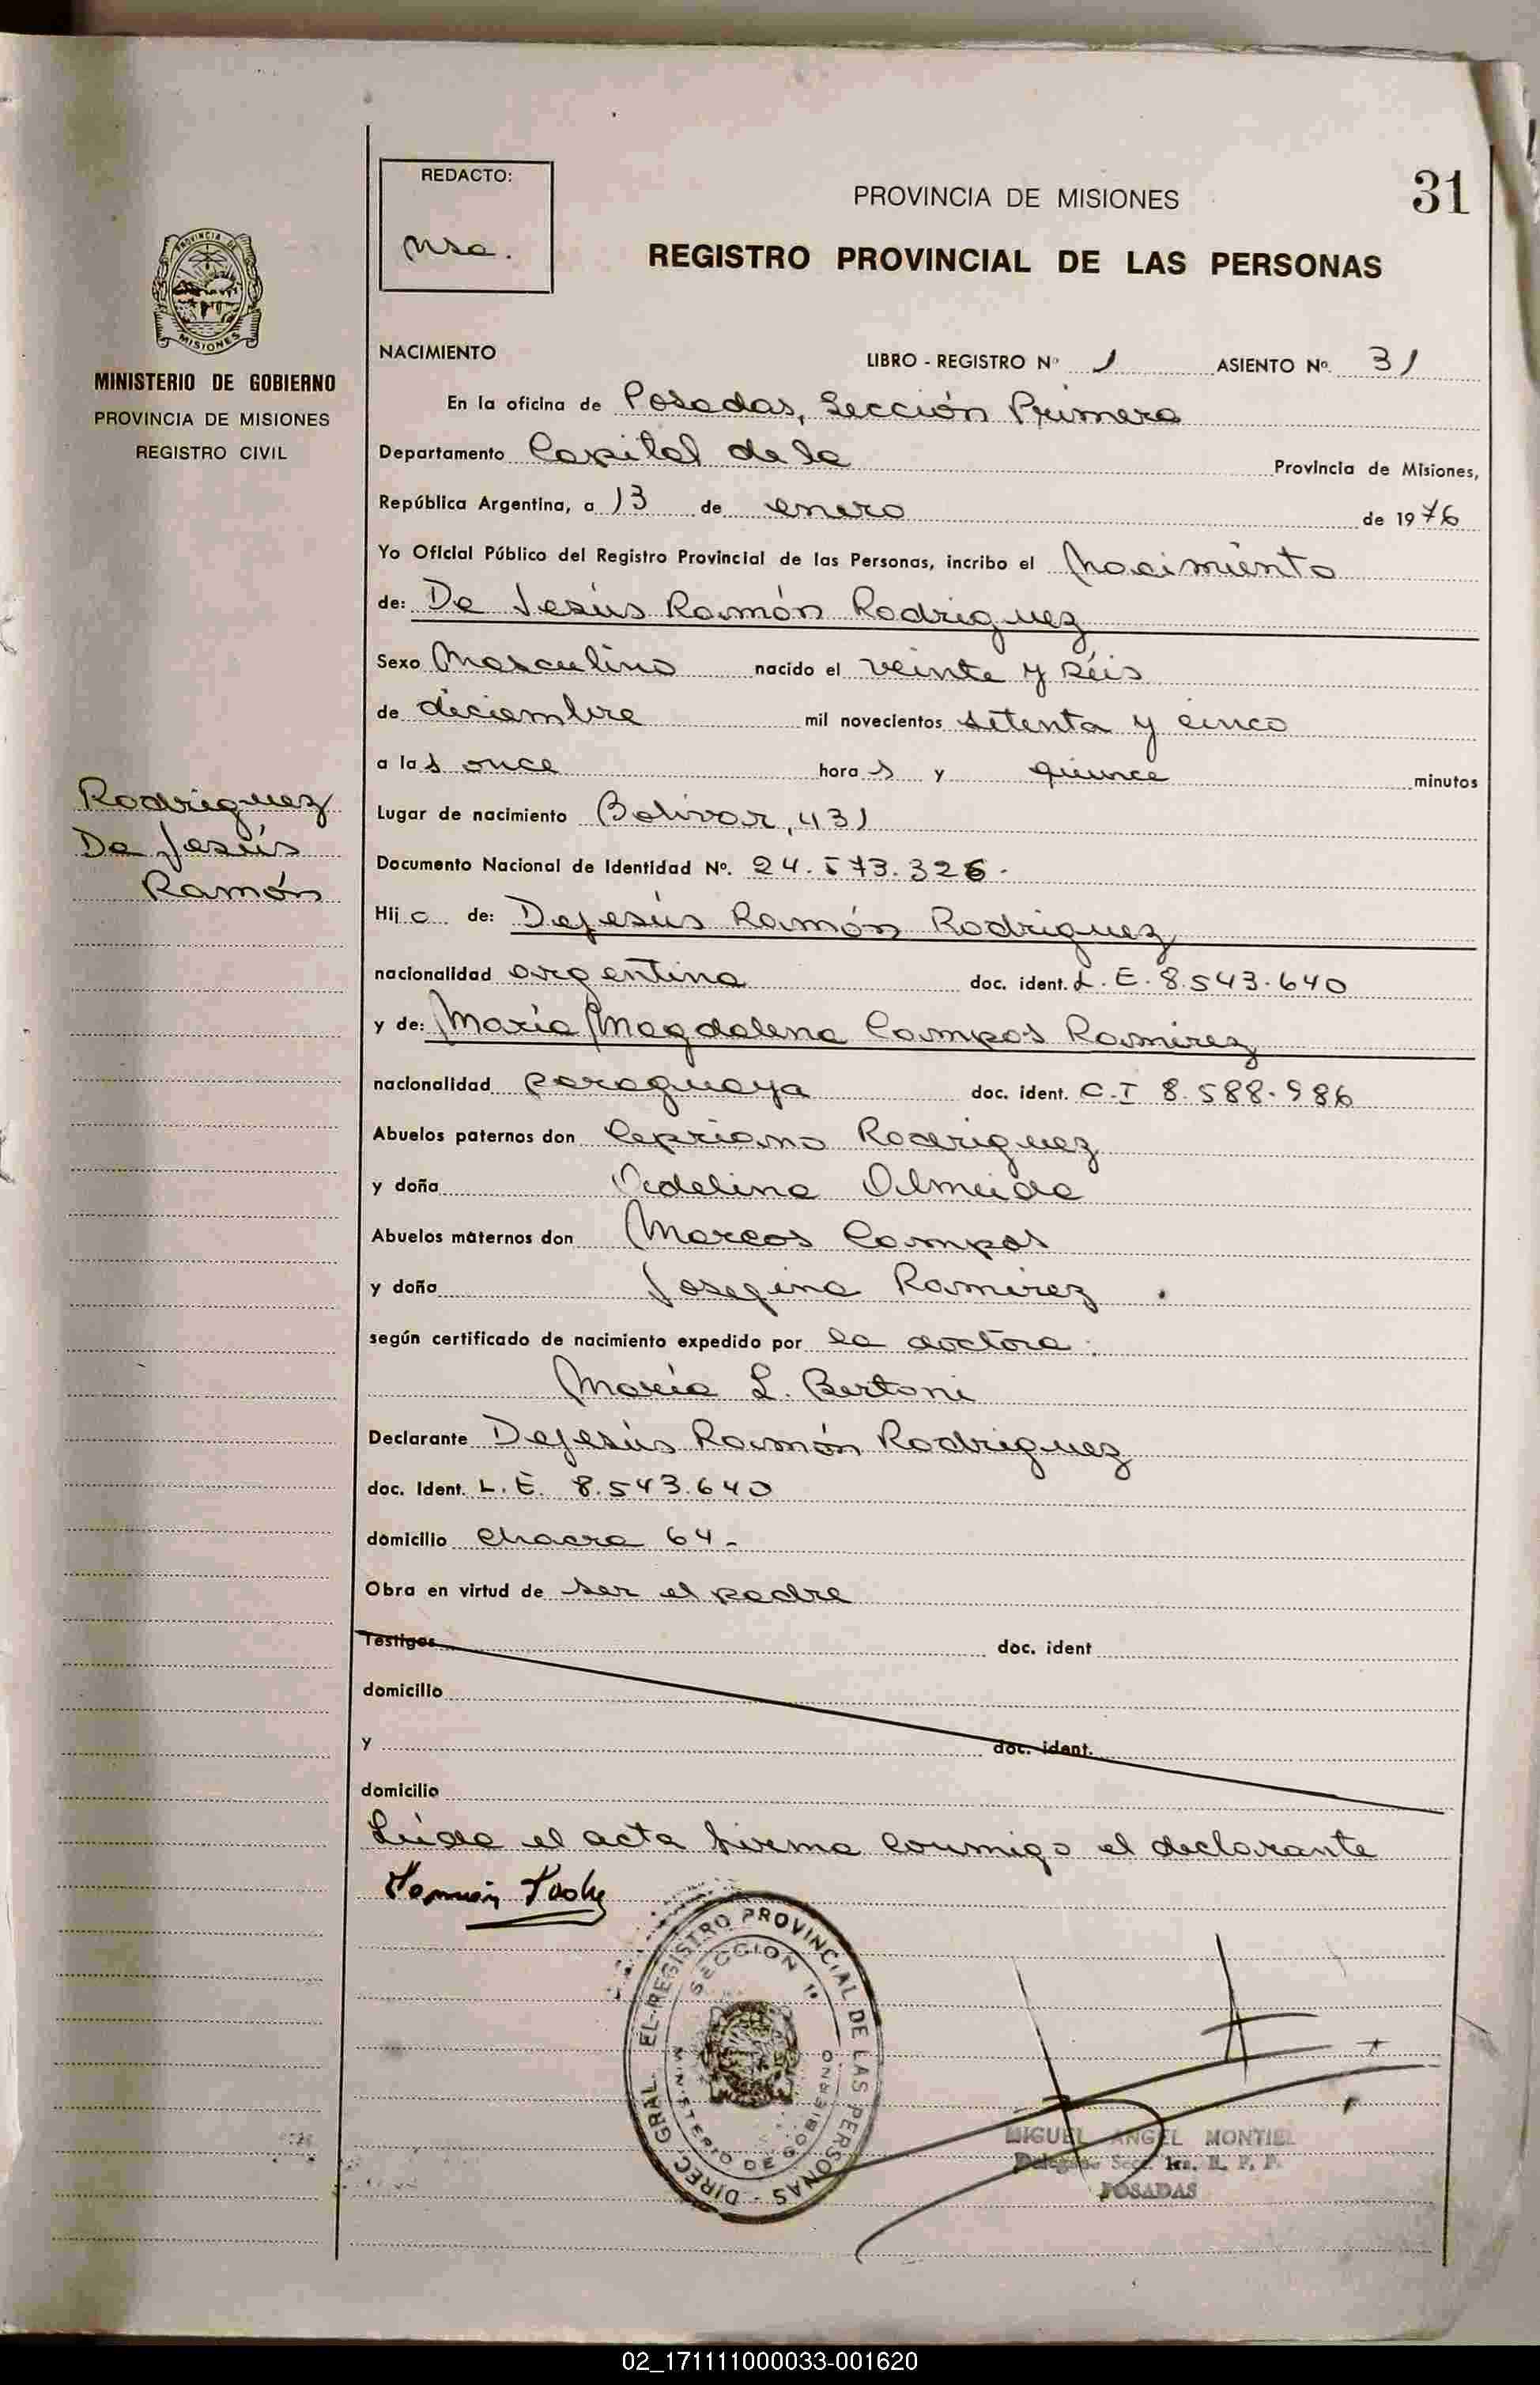 31
REDACTO:
PROVINCIA DE MISIONES
REGISTRO PROVINCIAL DE LAS PERSONAS
PROVINCIA DE
MISIONES
MINISTERIO DE GOBIERNO
PROVINCIA DE MISIONES
REGISTRO CIVIL
Rodriguez
De Jesús
Ramón
NACIMIENTO LIBRO - REGISTRO Nº 1 ASIENTO Nº 31
En la oficina de Posadas, Sección Primera
Departamento Capital de la Provincia de Misiones,
República Argentina, a 13 de enero de 1976
Yo Oficial Público del Registro Provincial de las Personas, incribo el Nacimiento
de: De Jesús Ramón Rodriguez
Sexo Masculino nacido el veinte y séis
de diciembre mil novecientos setenta y cinco
a las once horas y quince minutos
Lugar de nacimiento Bolívar, 431
Documento Nacional de Identidad Nº. 24.573.326.
Hijo de: Dejesús Ramón Rodriguez
nacionalidad argentina doc. ident. L.E. 8.543.640
y de: María Magdalena Campos Ramirez
nacionalidad paraguaya doc. ident. C.I 8.588.986
Abuelos paternos don Cepriano Rodriguez
y doña Adelina Olmeida
Abuelos maternos don Marcos Campos
y doña Josefina Ramirez
según certificado de nacimiento expedido por la doctora:
María L. Bertoni
Declarante Dejesús Ramón Rodriguez
doc. Ident. L.E. 8.543.640
domicilio Chacra 64.-
Obra en virtud de ser el padre
Testigos doc. ident
domicilio
y doc. ident.
domicilio
Leída el acta firma conmigo el declarante
DIREC. GRAL. EL REGISTRO PROVINCIAL DE LAS PERSONAS -
SECCION 1º
MINISTERIO DE GOBIERNO
MIGUEL ANGEL MONTIEL
POSADAS
02_171111000033-001620